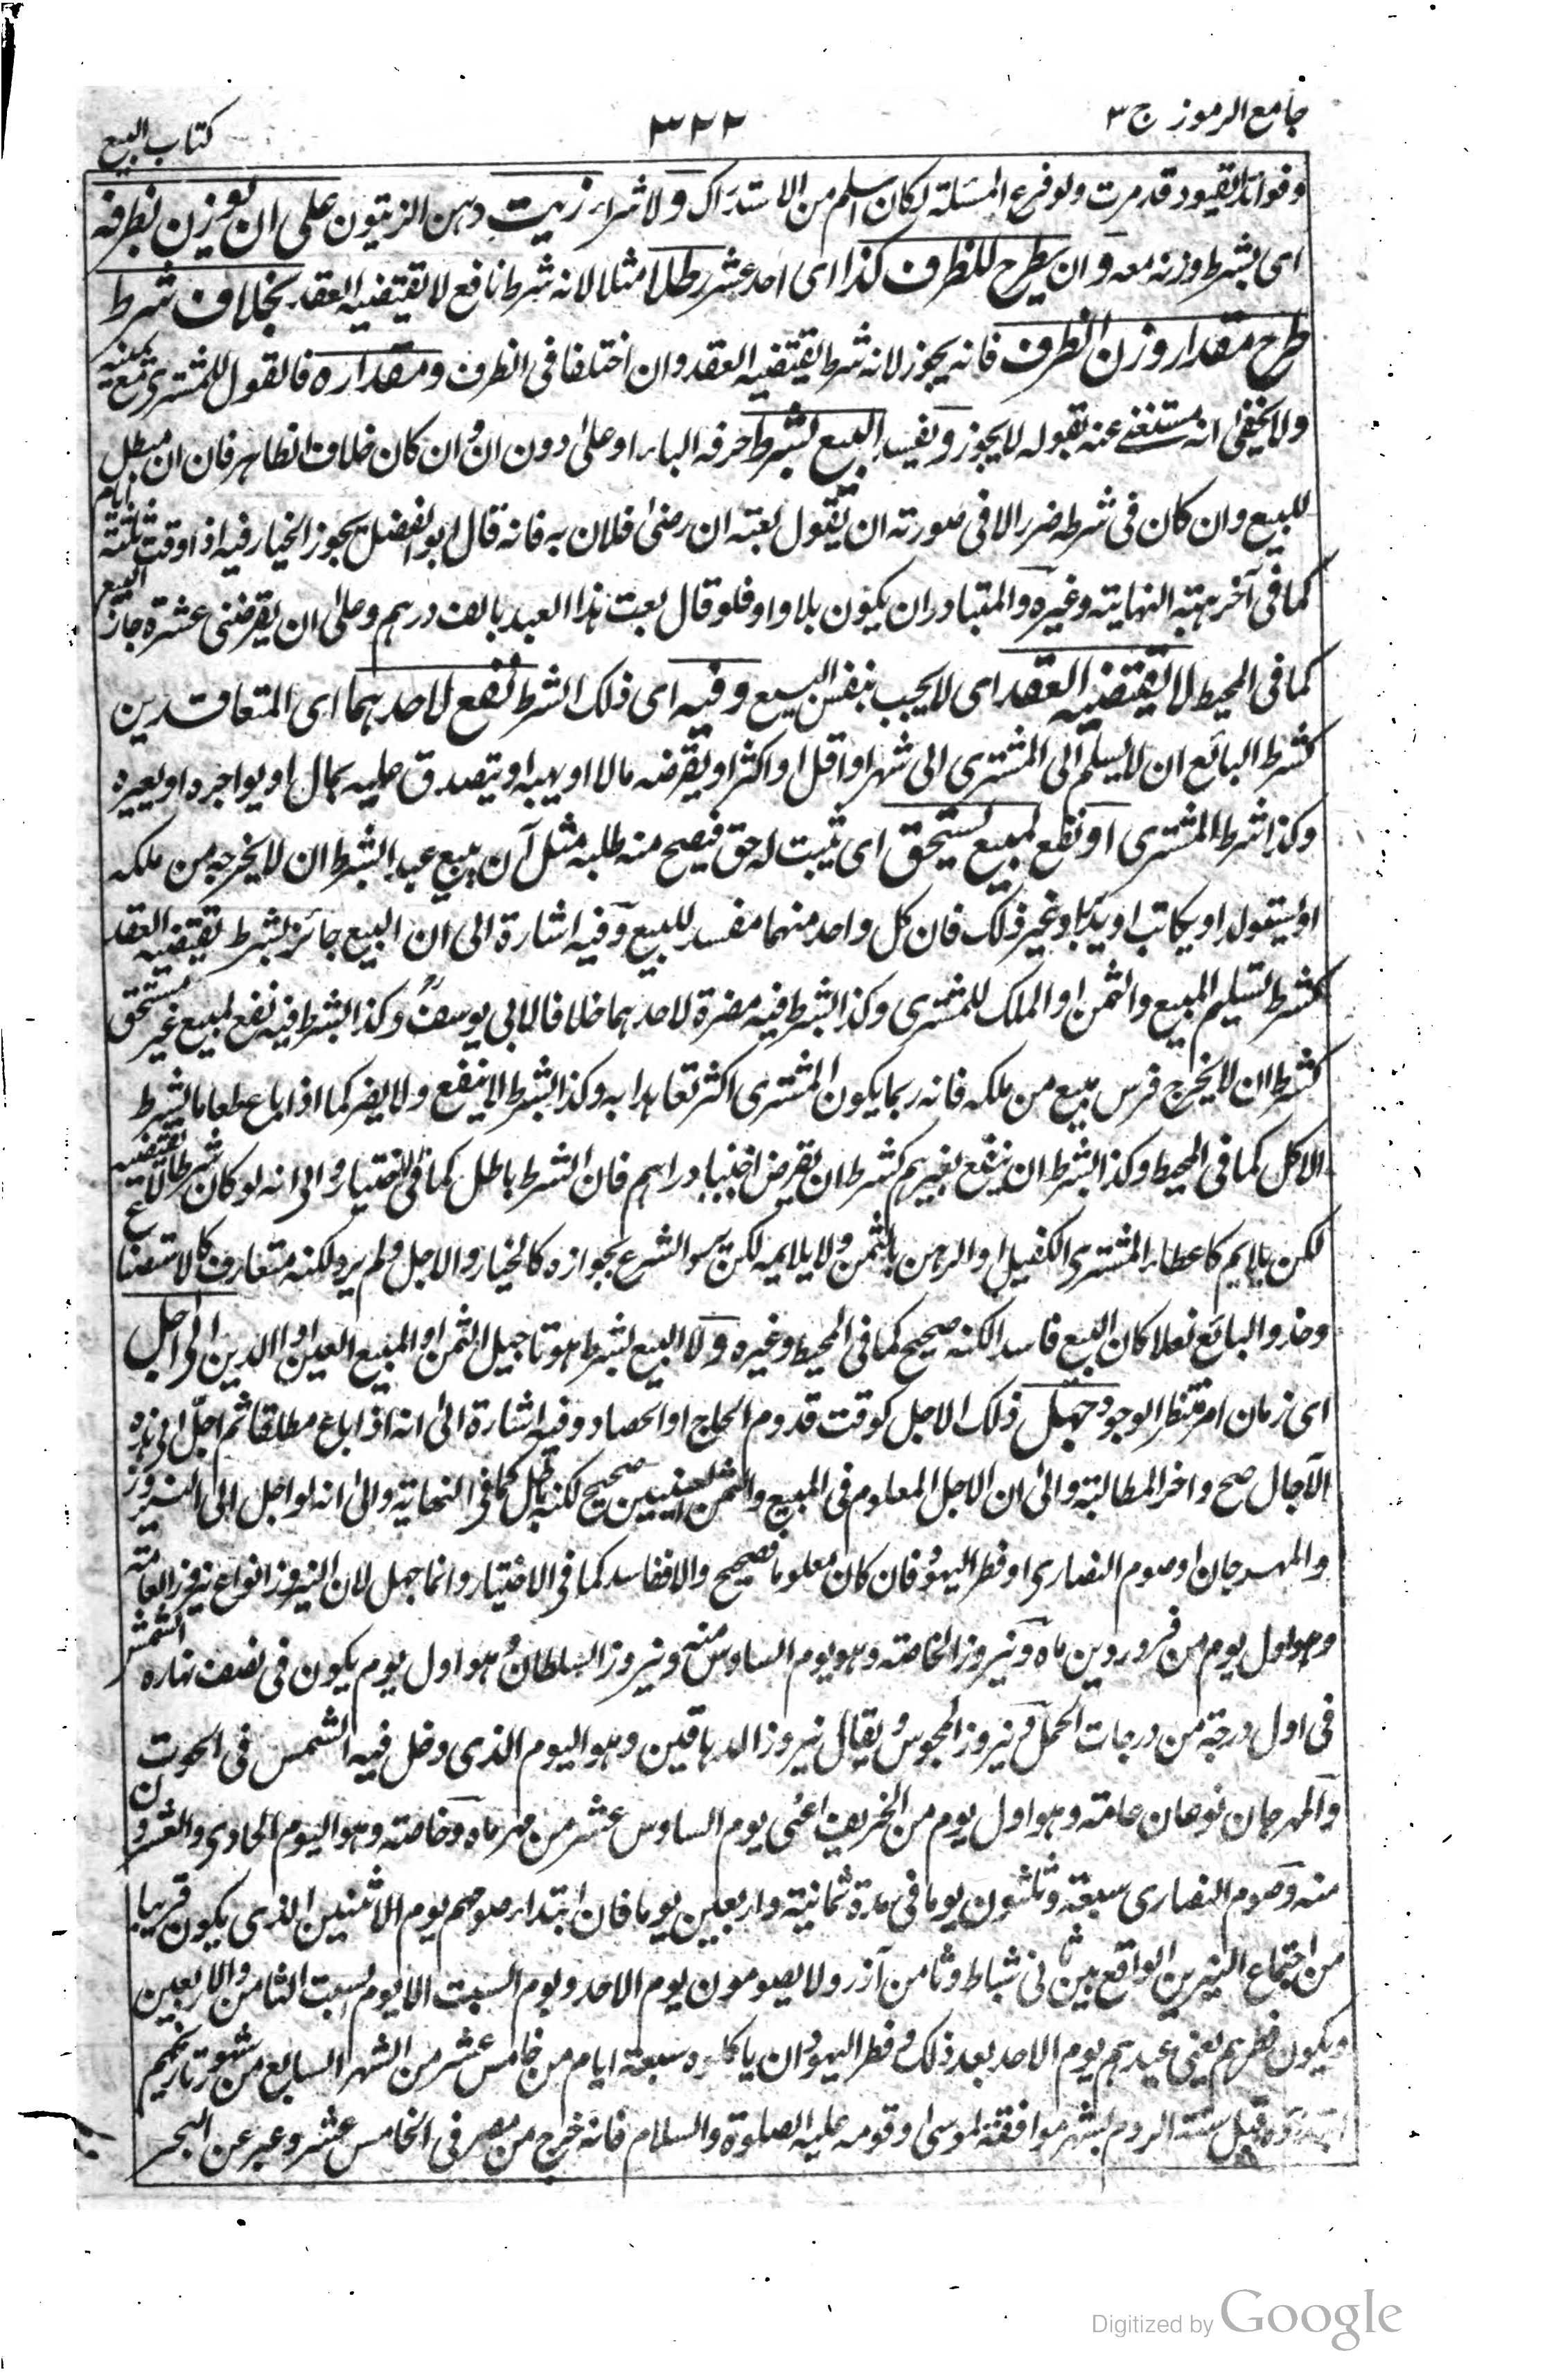 جامع الرموز ج ٣
٣٢٢
كتاب البيع
وفوائد القيود قد مرت ولو فرع المسئلة لكان اسلم من الاستدراك ولا شراء زيت دهن الزيتون على ان يوزن بظرفه
اى بشرط وزنه معه وان يطرح للظرف كذا اى احد عشر رطلا مثلا لانه شرط نافع لا يقتضيه العقد بخلاف شرط
طرح مقدار وزن الظرف فانه يجوز لانه شرط يقتضيه العقد وان اختلفا فى الظرف ومقداره فالقول للمشترى مع يمينه
ولا يخفى انه مستغنے عنه بقوله لا يجوز ويفسد البيع بشرط حرفه الباء او على دون ان وان كان خلاف الظاهر فان ان مبطل
للبيع وان كان فى شرطه ضرر الا فى صورته ان يقول بعته ان رضى فلان به فانه قال ابو الفضل يجوز الخيار فيه اذا وقت بثلثة ايام
كما فى آخر هبة النهاية وغيره والمتبادر ان يكون بلا واو فلو قال بعت هذا العبد بالف درهم وعلى ان يقرضنى عشرة جاز البيع
كما فى المحيط لا يقتضيه العقد اى لا يجب بنفس البيع وفيه اى ذلك الشرط نفع لاحدهما اى المتعاقدين
كشرط البائع ان لا يسلم الى المشترى الى شهر او اقل او اكثر او يقرضه مالا او يهبه او يتصدق عليه بمال او يواجره او يعيره
وكذا شرط المشترى او نفع لمبيع يستحق اى يثبت له حق فيصح منه طلبه مثل ان يبيع عبدا بشرط ان لا يخرجه من ملكه
او يستولد او يكاتب او يدبر او غير ذلك فان كل واحد منهما مفسد للبيع وفيه اشارة الى ان البيع جائز بشرط يقتضيه العقد
كشرط تسليم المبيع والثمن او الملك للمشترى وكذا بشرط فيه مضرة لاحدهما خلافا لابى يوسف وكذا بشرط فيه نفع لمبيع غير مستحق
كشرط ان لا يخرج فرس بيع من ملكه فانه ربما يكون المشترى اكثر تعاهدا به وكذا بشرط لا ينفع ولا يضر كما اذا باع طعاما بشرط
الاكل كما فى المحيط وكذا بشرط ان ينتفع بغيرهم كشرط ان يقرض اجنبيا دراهم فان الشرط باطل كما فى الاختيار والى انه لو كان شرطا لا يقتضيه
لكن يلايم كاعطاء المشترى الكفيل او الرهن بالثمن ولا يلايمه لكن الشرع بجوازه كالخيار والاجل ولم يرد لكنه متعارف كالاستصناع
وحذو البائع نعلا كان البيع فاسدا لكنه صحيح كما فى المحيط وغيره ولا البيع بشرط هو تاجيل الثمن او المبيع العين او الدين الى اجل
اى زمان امر منتظر الوجود جهل ذلك الاجل كوقت قدوم الحاج او الحصاد وفيه اشارة الى انه اذا باع مطلقا ثم اجل الى هذه
الآجال صح واخر المطالبة والى ان الاجل المعلوم فى المبيع والثمن العينين صحيح لكنه باطل كما فى النهاية والى انه لو اجل الى النيروز
والمهرجان او صوم النصارى او فطر اليهود فان كان معلوما فصحيح والا ففاسد كما فى الاختيار وانما جهل لان النيروز انواع نيروز العامة
وهو اول يوم من فروردين ماه ونيروز الخاصة وهو يوم السادس منه ونيروز السلطان هو اول يوم يكون فى نصف نهاره الشمس
فى اول درجة من درجات الحمل ونيروز المجوس ويقال نيروز الدهاقين وهو اليوم الذى دخل فيه الشمس فى الحوت
والمهرجان نوعان عامة وهو اول يوم من الخريف اعنى يوم السادس عشر من مهر ماه وخاصة وهو اليوم الحادى والعشرون
منه وصوم النصارى سبعة وثلثون يوما فى مدة ثمانية واربعين يوما فان ابتداء صومهم يوم الاثنين الذى يكون قريبا
من اجتماع النيرين الواقع بين ثانى شباط وثامن آذر ولا يصومون يوم الاحد ويوم السبت الا يوم السبت الثامن والاربعين
ويكون فطرهم يعنى عيدهم يوم الاحد بعد ذلك وفطر اليهود ان ياكلوه سبعة ايام من خامس عشر من الشهر السابع من شهور تاريخهم
قبل سنة الروم بشهر موافقة لموسى وقومه عليه الصلوة والسلام فانه خرج من مصر فى الخامس عشر وعبر عن البحر
Digitized by Google